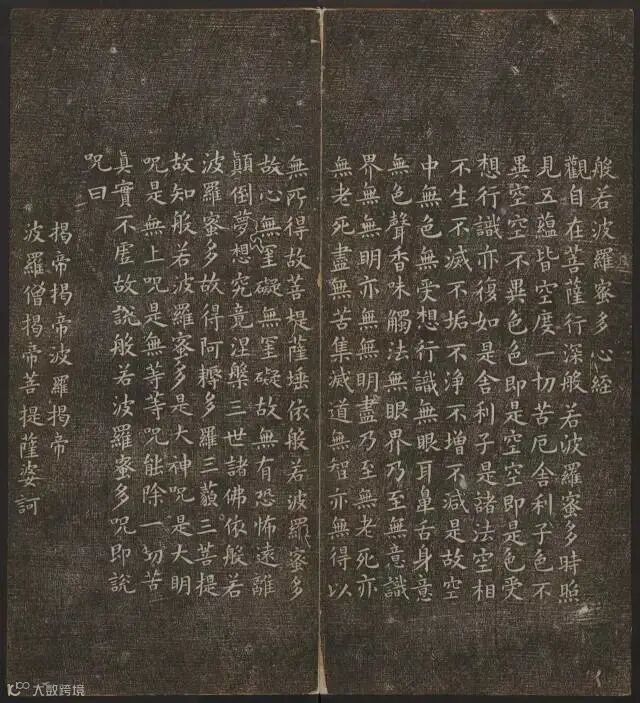 般若波羅蜜多心経
觀自在菩薩行深般若波羅蜜多時照
見五蘊皆空度一切苦厄舍利子色不
異空空不異色色即是空空即是色受
想行識亦復如是舍利子是諸法空相
不生不滅不垢不淨不增不減是故空
中無色無受想行識無眼耳鼻舌身意
無色聲香味觸法無眼界乃至無意識
界無無明亦無無明盡乃至無老死亦
無老死盡無苦集滅道無智亦無得以
無所得故菩堤薩埵依般若波羅蜜多
故心無罣礙無罣礙故無有恐怖遠離
顛倒夢想究竟涅槃三世諸佛依般若
波羅蜜多故得阿耨多羅三藐三菩提
故知般若波羅蜜多是大神呪是大明
呪是無上呪是無等等呪能除一切苦
真實不虛故說般若波羅蜜多呪即說
呪曰
揭帝揭帝波羅揭帝
波羅僧揭帝菩提薩婆訶
大数跨境